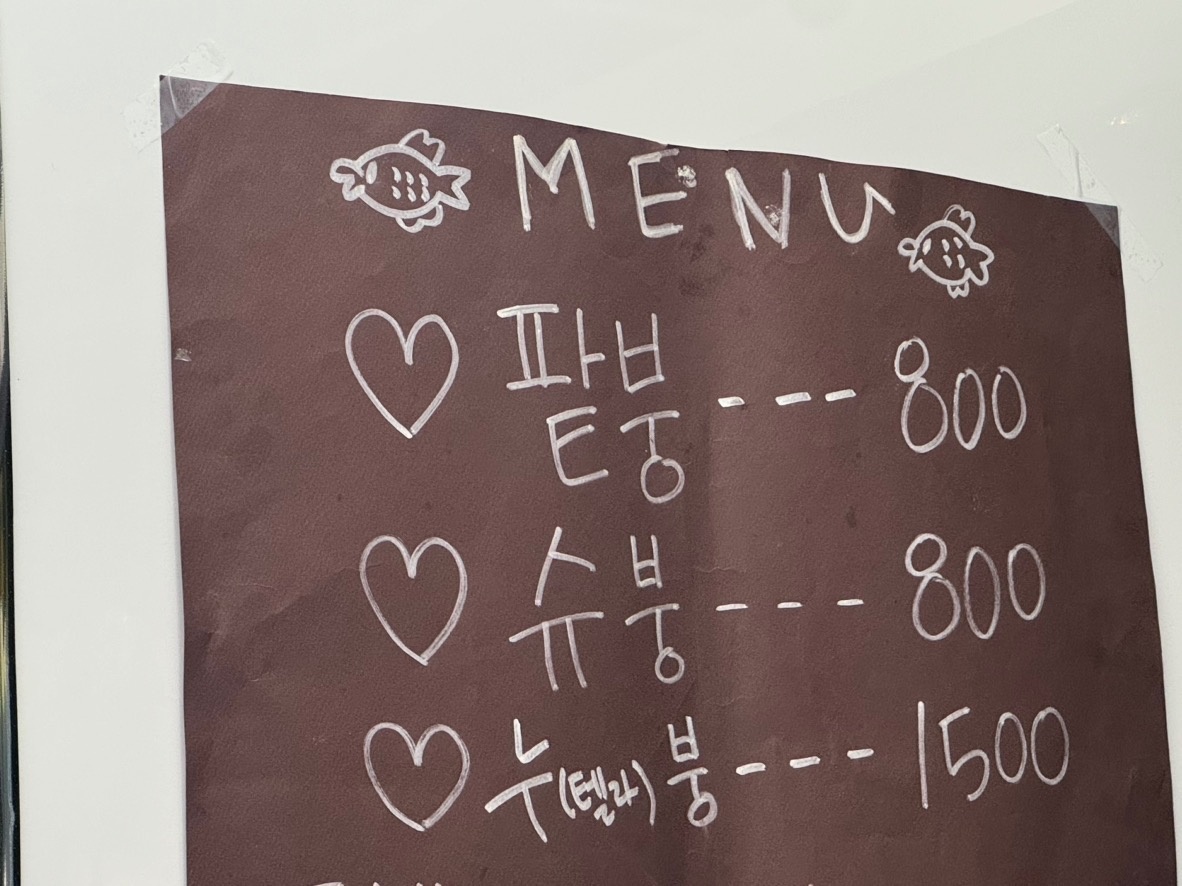 MENU
팥붕 --- 800
슈붕 --- 800
누(텔라)붕 --- 1500